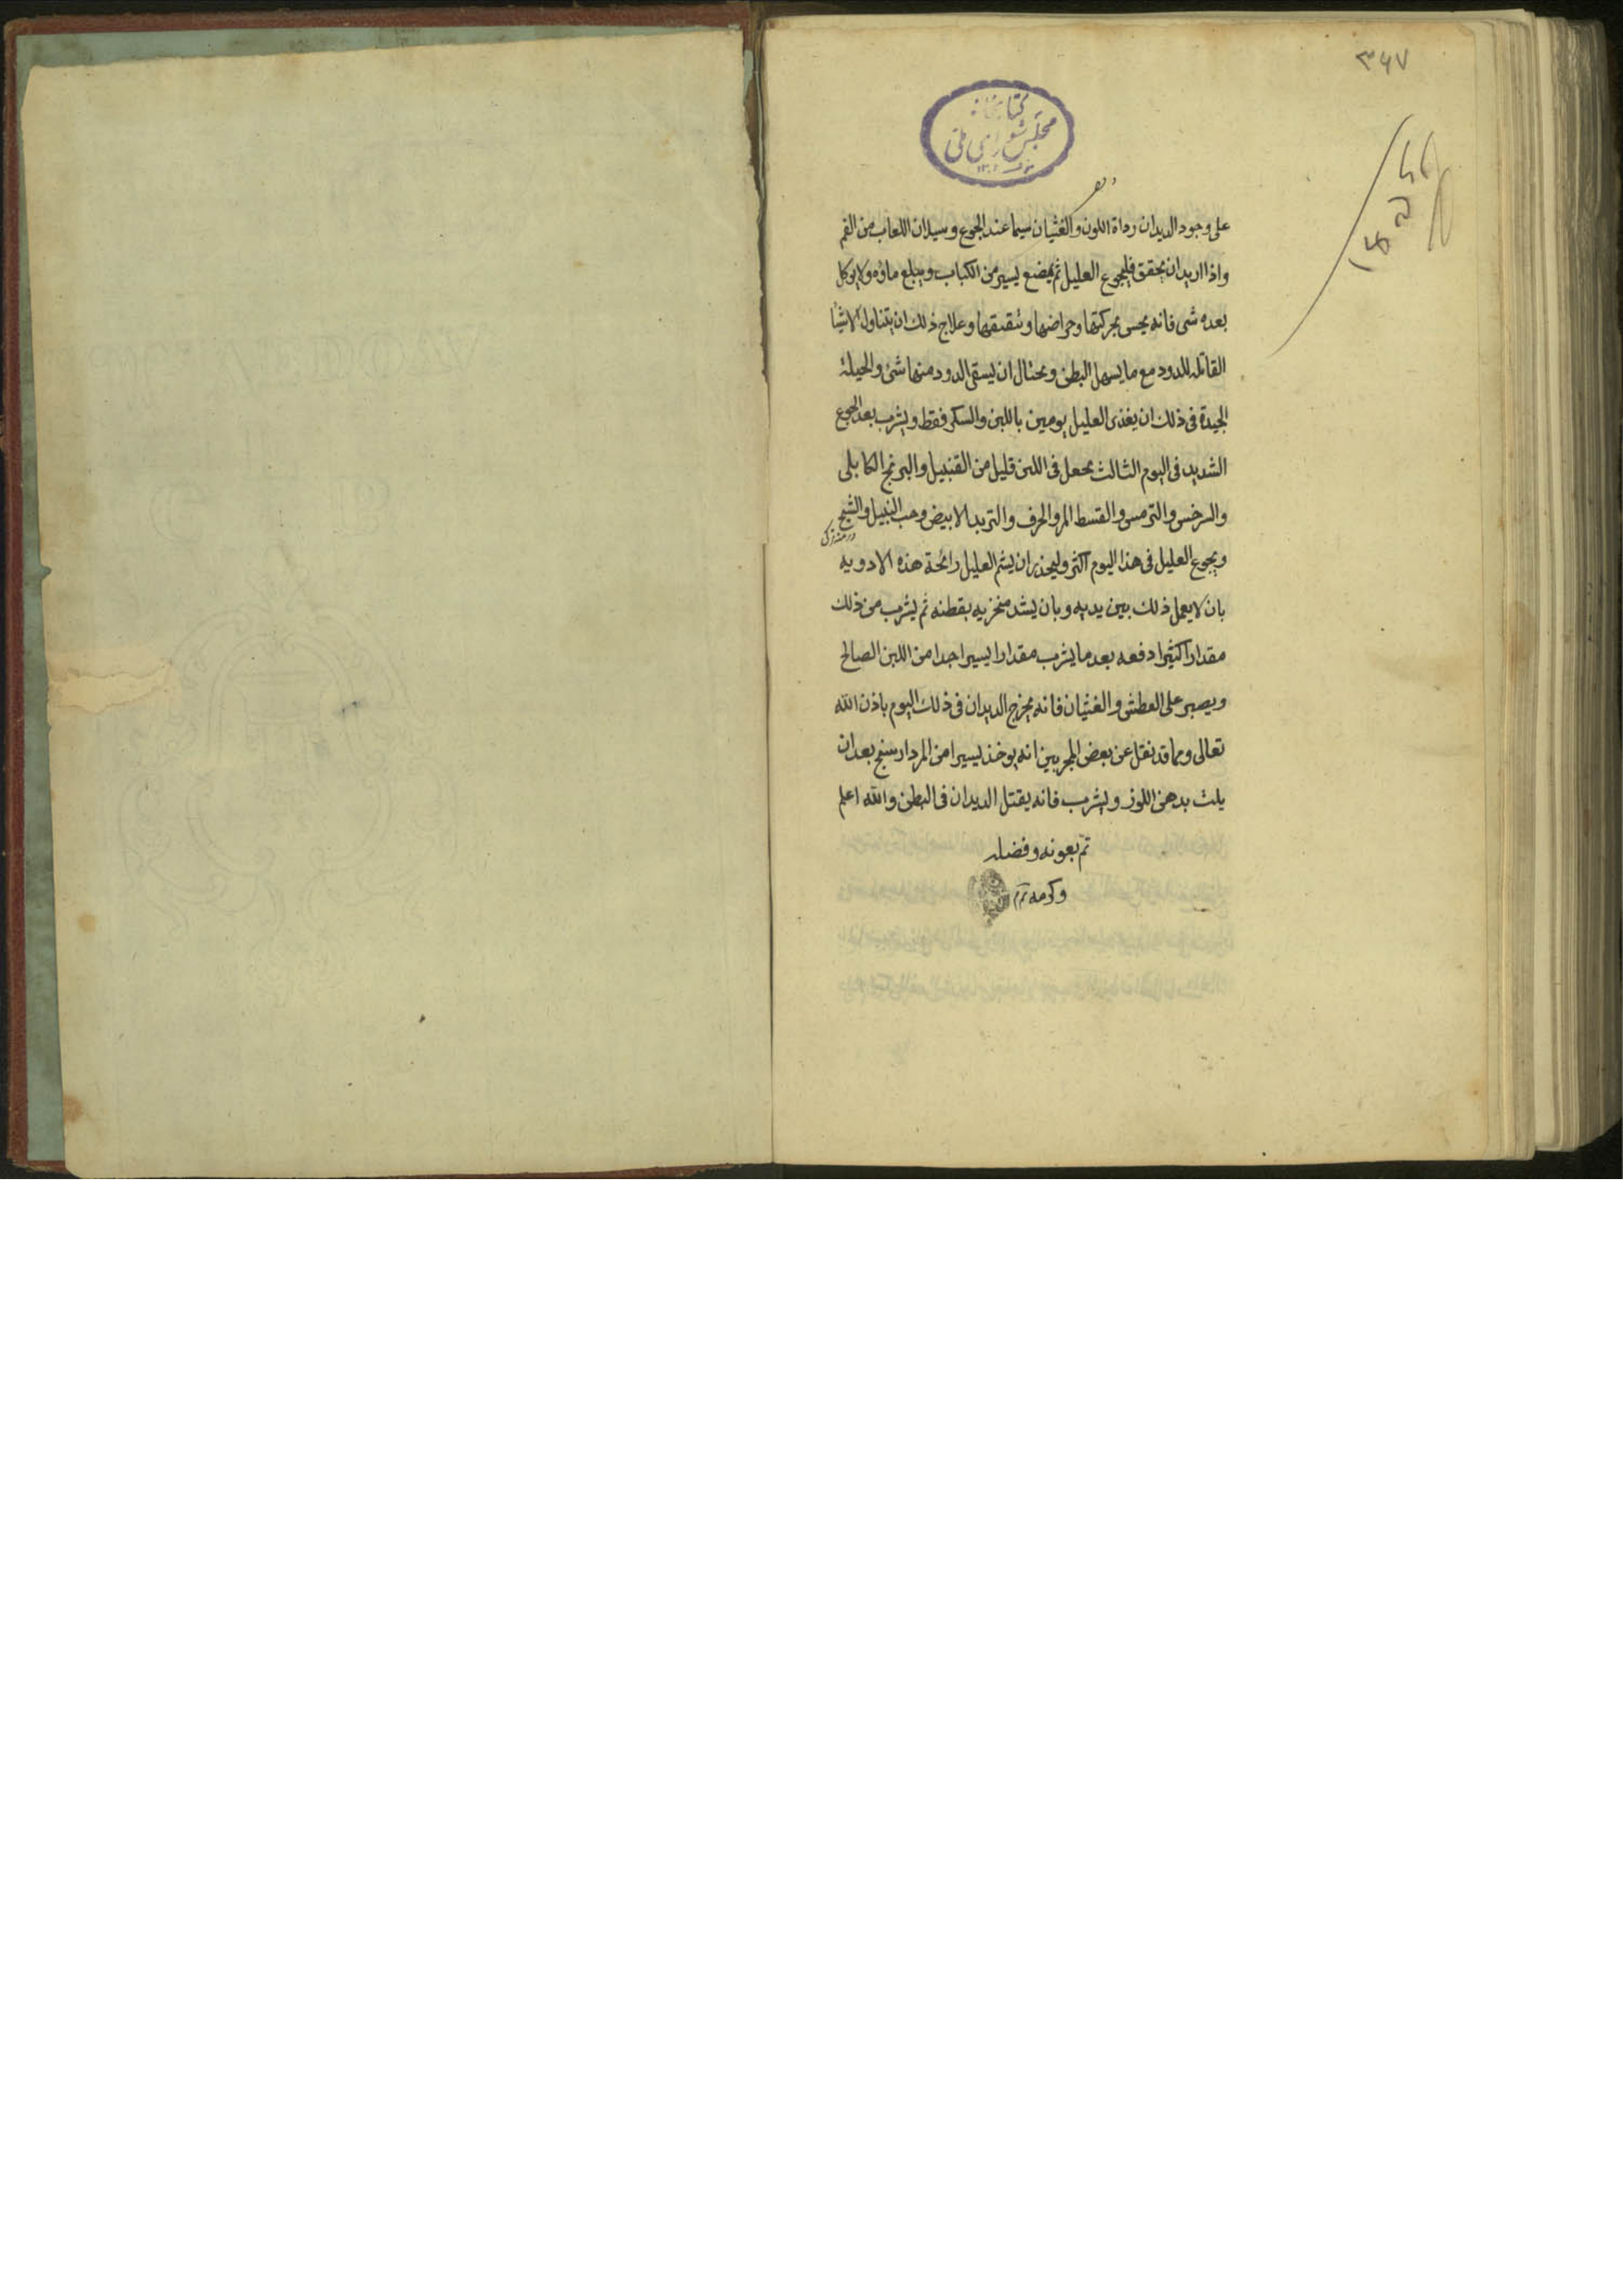 ٣٤٧
كتابخانه
مجلس شورای ملی
على وجود الديدان رداة اللون والغثيان سيما عند الجوع وسيلان اللعاب من الفم
واذا اريد ان يحقق فليجوع العليل ثم يمضغ يسير من الكباب ويبلع ماؤه ولا يوكل
بعده شى فانه يحس بحركتها وحراضها وتقنقها وعلاج ذلك ان يتناول الاشيا
القاتله للدود مع ما يسهل البطن ويحتال ان يسقى الدود منها شئ والحيلة
الجيدة فى ذلك ان يغذى العليل يومين باللبن والسكر فقط ويشرب بعد الجوع
الشديد فى اليوم الثالث يجعل فى اللبن قليل من القنبيل والبرنج الكابلى
والسرخس والترمس والقسط المر والحرف والتربد الابيض وحب النيل والشيح
ويجوع العليل فى هذا اليوم اكثر وليحذر ان يشم العليل رائحة هذه الادويه
بان لا يعمل ذلك بين يديه وبان يشد منخزيه بقطنه ثم يشرب من ذلك
مقدارا كثيرا دفعه بعد ما يشرب مقدارا يسيرا جدا من اللبن الصالح
ويصبر على العطش والغثيان فانه يخرج الديدان فى ذلك اليوم باذن الله
تعالى ومما قد نقل عن بعض المجربين انه يوخذ يسيرا من المردارسنج بعد ان
يلت بدهن اللوز ويشرب فانه يقتل الديدان فى البطن والله اعلم
تم بعونه وفضله
وكرمه